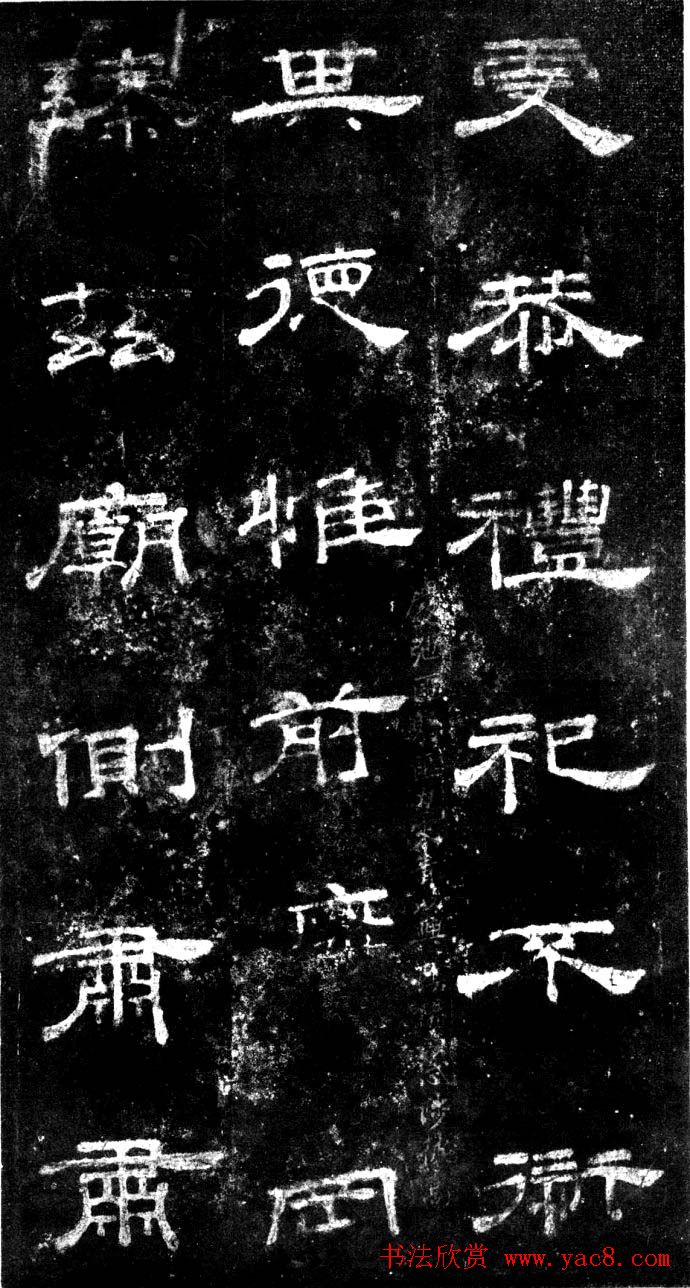 虔恭禮祀不衍
其德惟前廢罔
臻茲廟側肅肅
书法欣赏 www.yac8.com